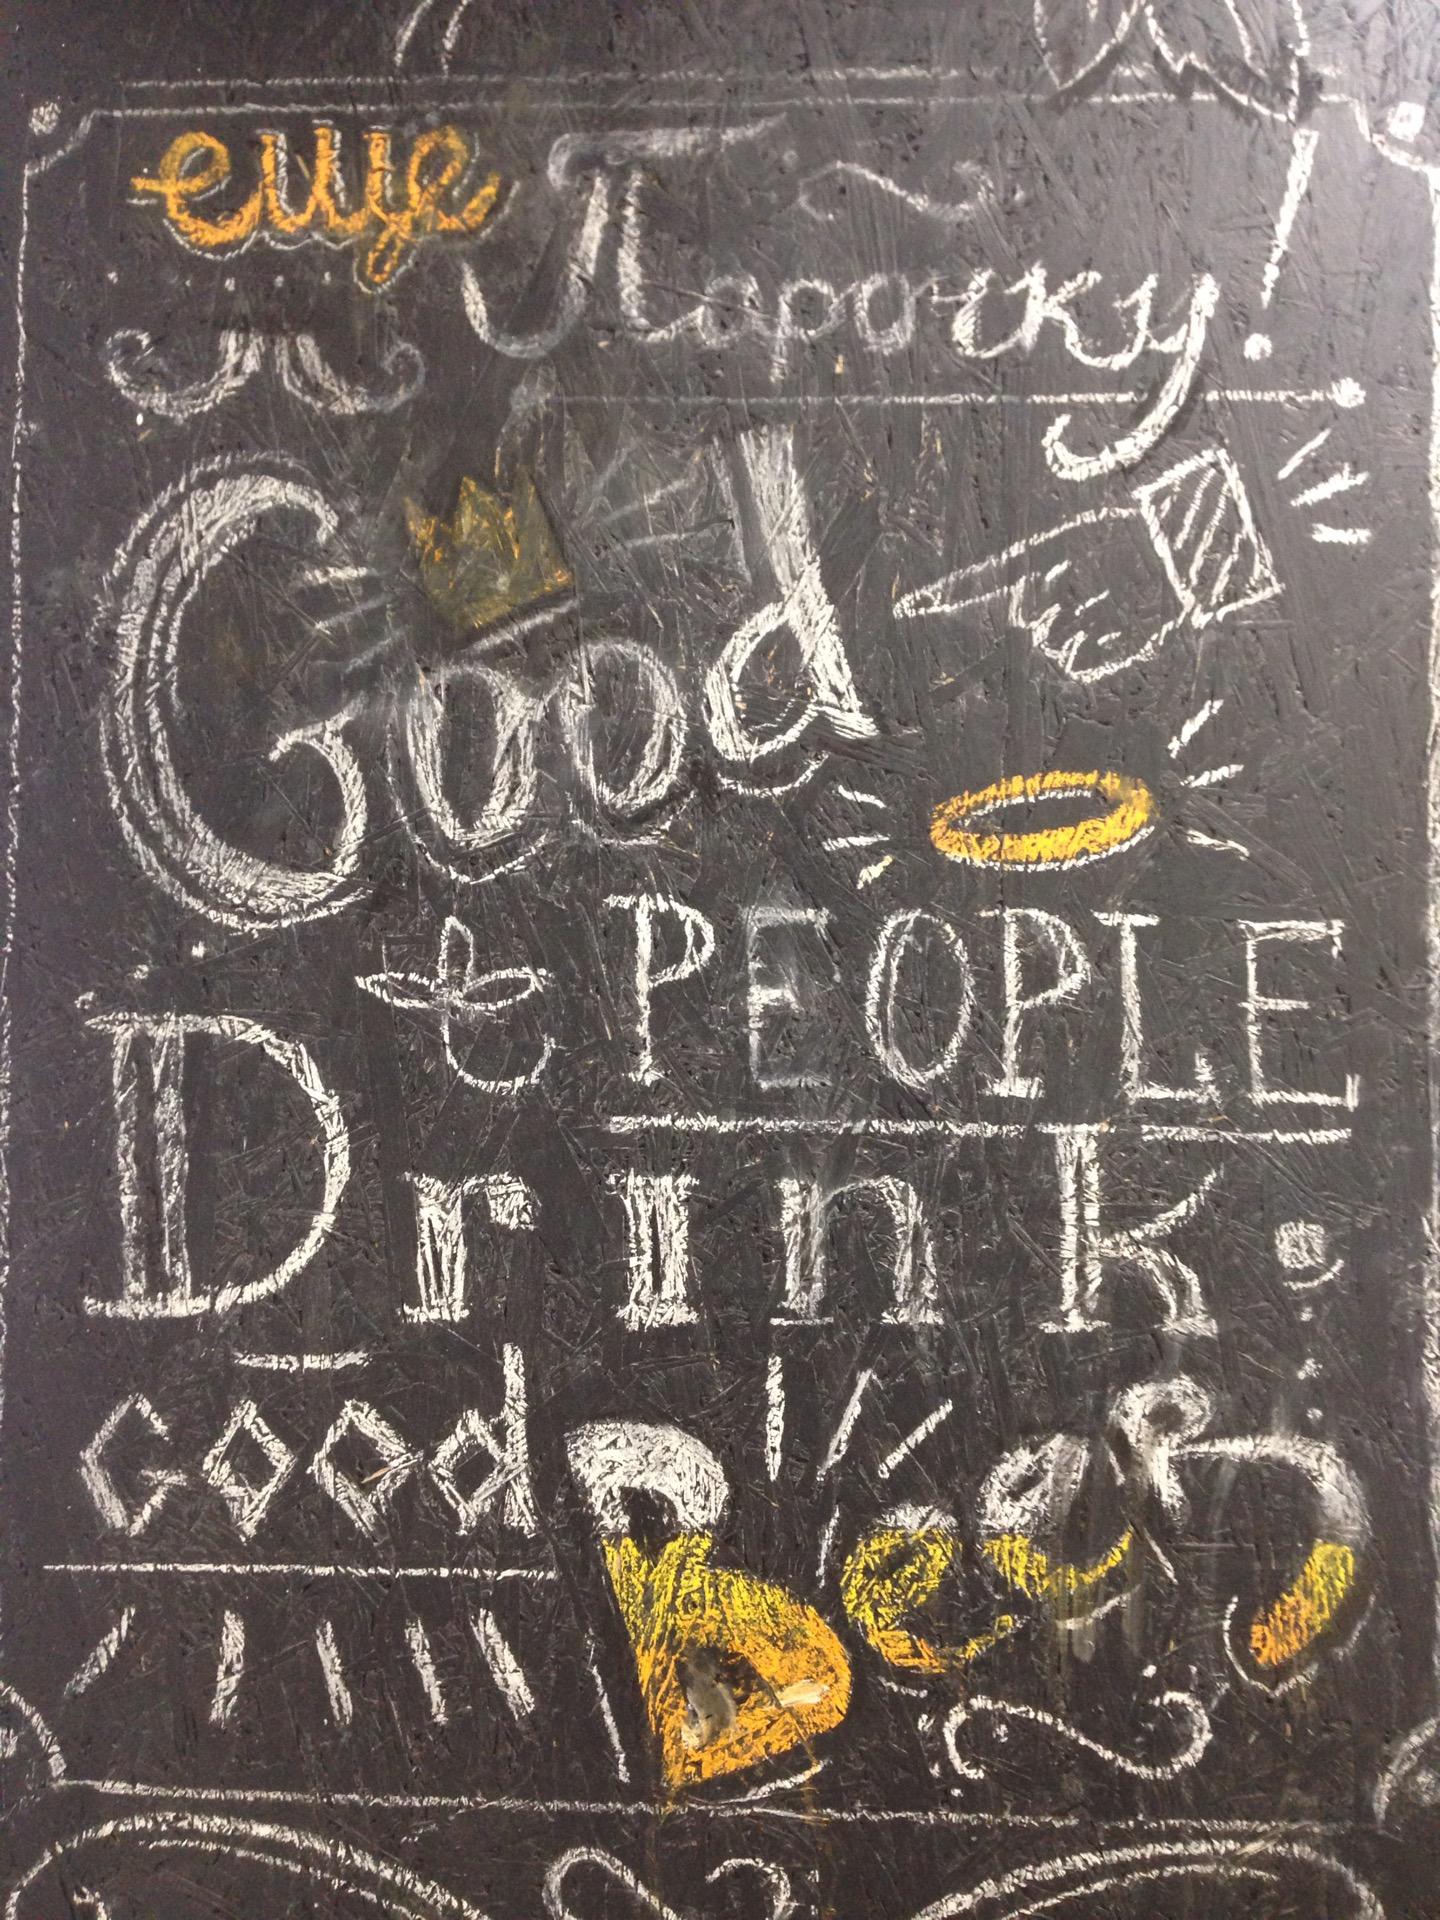 еще Парочку!
Good
PEOPLE
Drink
Good Beer